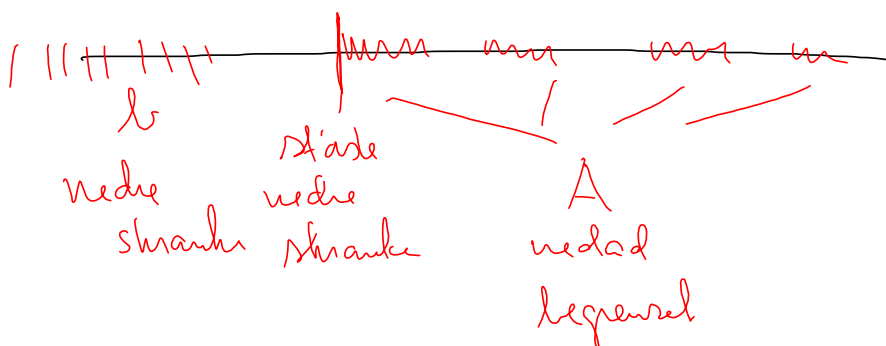 b
nedre
skranke
største
nedre
skranke
A
nedad
begrenset